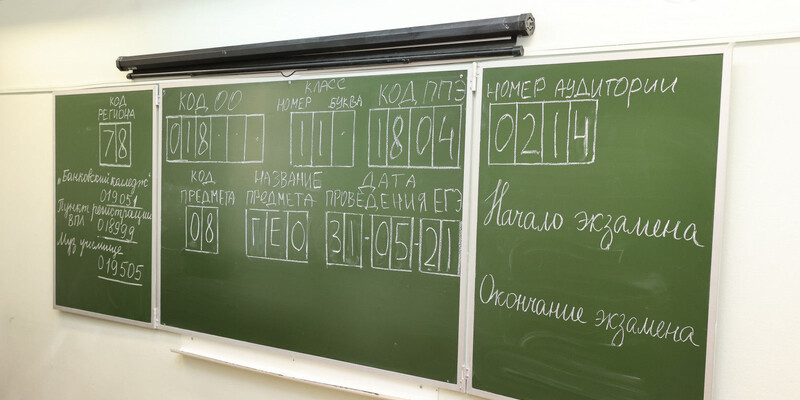 КОД
РЕГИОНА
78
„Банковский каледж"
019051
Пункт регистрации
ВПЛ 018999
Муз училище
019505
КОД ОО
018··
КЛАСС
НОМЕР БУКВА
11
КОД ППЭ
1804
КОД
ПРЕДМЕТА
08
НАЗВАНИЕ
ПРЕДМЕТА
ГЕО
ДАТА
ПРОВЕДЕНИЯ ЕГЭ
31-05-21
НОМЕР АУДИТОРИИ
0214
Начало экзамена
Окончание экзамена